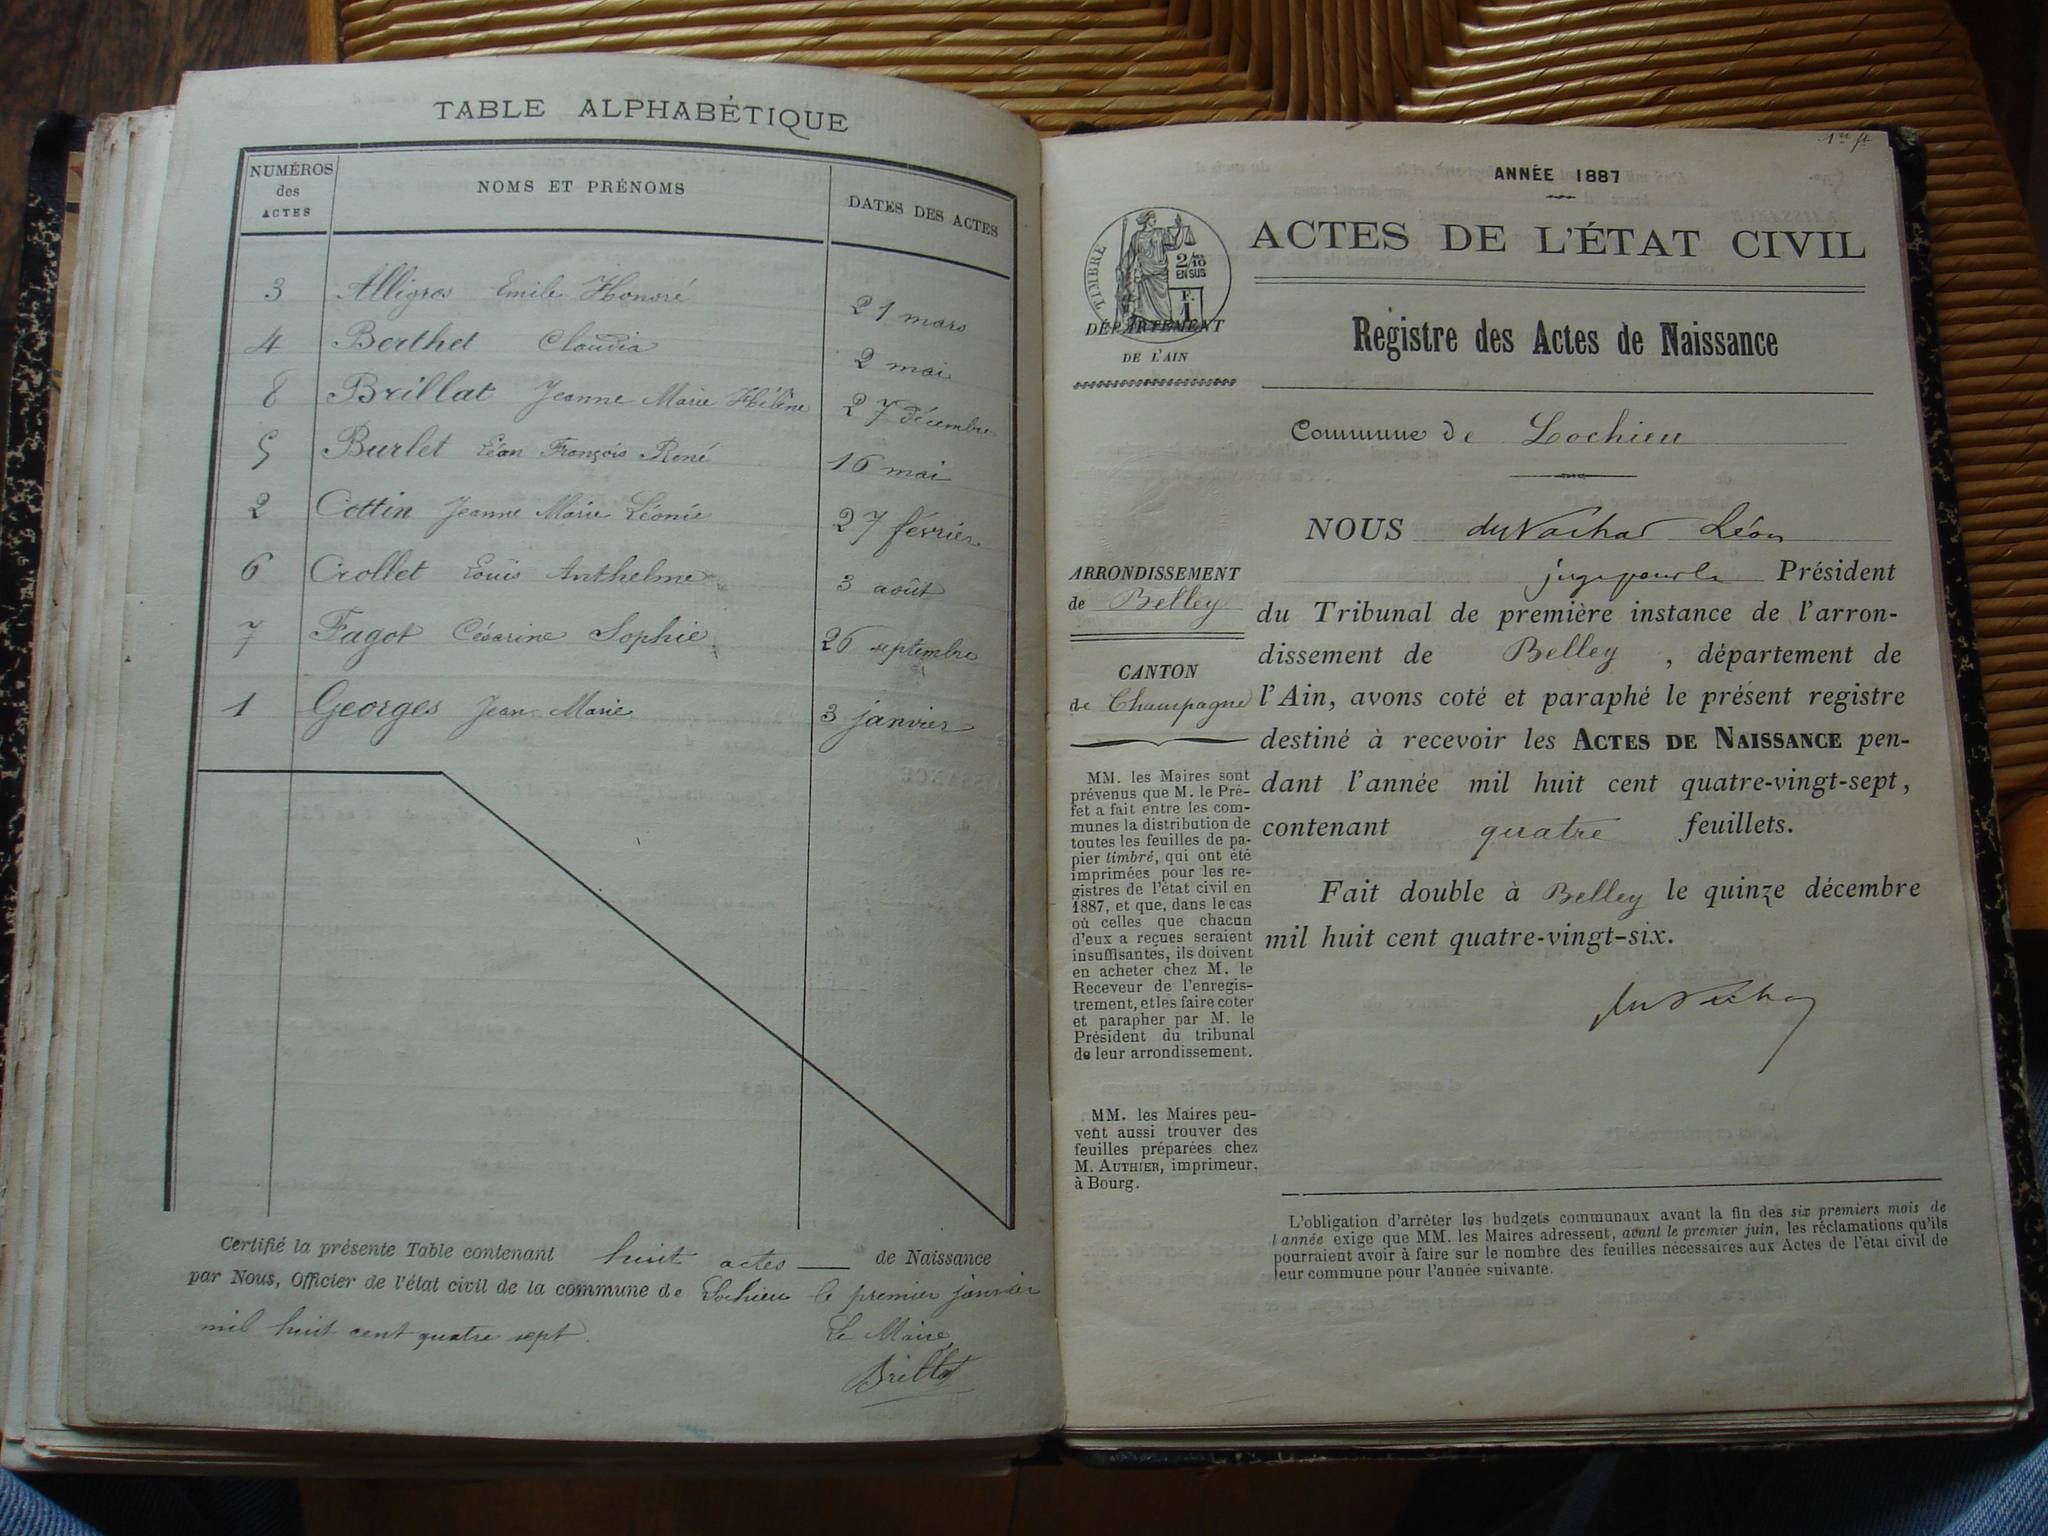 TABLE ALPHABÉTIQUE
NUMÉROS des ACTES
NOMS ET PRÉNOMS
DATES DES ACTES
3 Alligros Emile Honoré 21 mars
4 Berthet Claudia 2 mai
8 Brillat Jeanne Marie Hélène 27 décembre
5 Burlet Léon François René 16 mai
2 Cottin Jeanne Marie Léonie 27 février
6 Crollet Louis Anthelme 3 août
7 Fagot Césarine Sophie 26 septembre
1 Georges Jean Marie 3 janvier
Certifié la présente Table contenant huit actes de Naissance
par Nous, Officier de l'état civil de la commune de Lochieu le premier janvier
mil huit cent quatre sept.
Le Maire
Brillat
ANNÉE 1887
TIMBRE
2/10 EN SUS
F. 1
ACTES DE L'ÉTAT CIVIL
DÉPARTEMENT
DE L'AIN
Registre des Actes de Naissance
Commune de Lochieu
NOUS Léon
Président
du Tribunal de première instance de l'arron-
dissement de Belley, département de
l'Ain, avons coté et paraphé le présent registre
destiné à recevoir les ACTES DE NAISSANCE pen-
dant l'année mil huit cent quatre-vingt-sept,
contenant quatre feuillets.
Fait double à Belley le quinze décembre
mil huit cent quatre-vingt-six.
ARRONDISSEMENT
de Belley
CANTON
de Champagne
MM. les Maires sont
prévenus que M. le Pré-
fet a fait entre les com-
munes la distribution de
toutes les feuilles de pa-
pier timbré, qui ont été
imprimées pour les re-
gistres de l'état civil en
1887, et que, dans le cas
où celles que chacun
d'eux a reçues seraient
insuffisantes, ils doivent
en acheter chez M. le
Receveur de l'enregis-
trement, et les faire coter
et parapher par M. le
Président du tribunal
de leur arrondissement.
MM. les Maires peu-
vent aussi trouver des
feuilles préparées chez
M. AUTHIER, imprimeur,
à Bourg.
L'obligation d'arrêter les budgets communaux avant la fin des six premiers mois de
l'année exige que MM. les Maires adressent, avant le premier juin, les réclamations qu'ils
pourraient avoir à faire sur le nombre des feuilles nécessaires aux Actes de l'état civil de
leur commune pour l'année suivante.